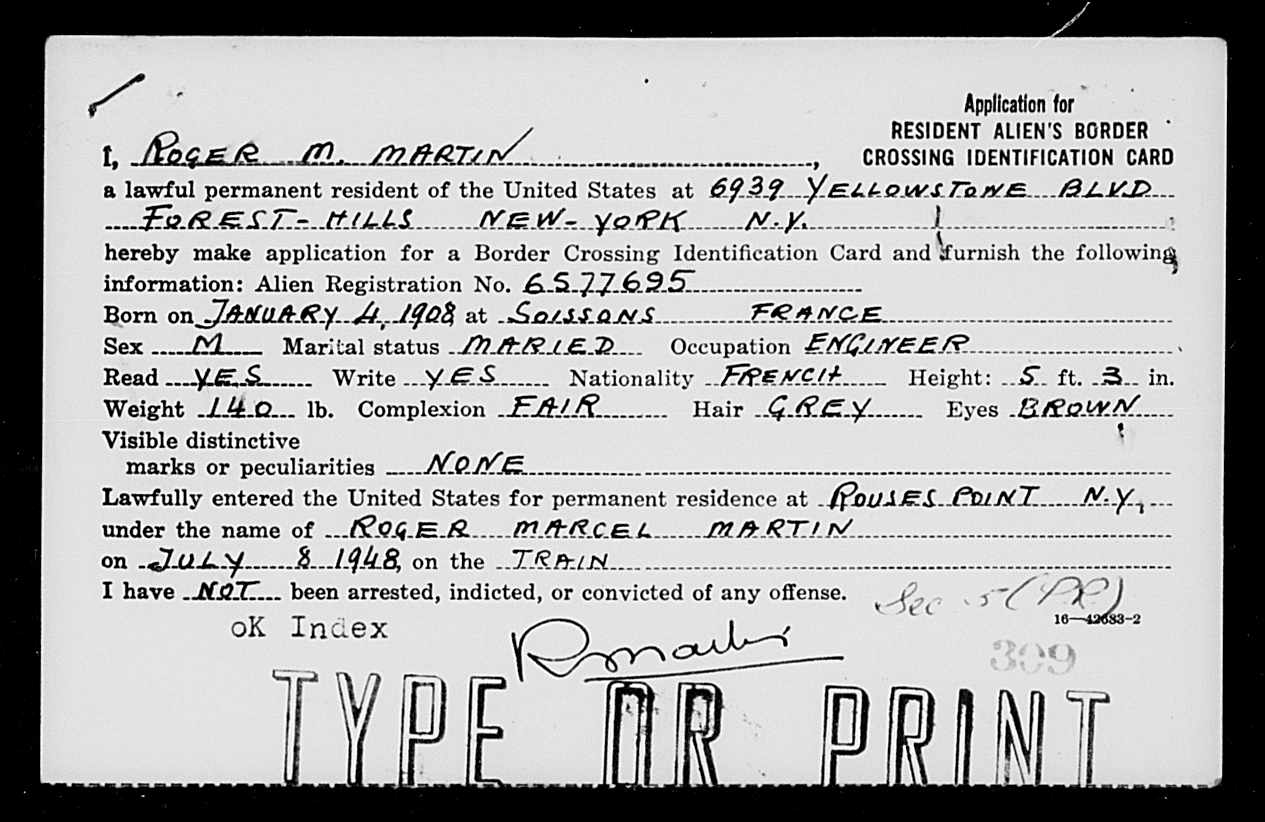 Application for
RESIDENT ALIEN'S BORDER
CROSSING IDENTIFICATION CARD
I, ROGER M. MARTIN,
a lawful permanent resident of the United States at 6939 YELLOWSTONE BLVD
FOREST-HILLS NEW-YORK N.Y.
hereby make application for a Border Crossing Identification Card and furnish the following
information: Alien Registration No. 6577695
Born on JANUARY 4, 1908 at SOISSONS FRANCE
Sex M Marital status MARIED Occupation ENGINEER
Read YES Write YES Nationality FRENCH Height: 5 ft. 3 in.
Weight 140 lb. Complexion FAIR Hair GREY Eyes BROWN
Visible distinctive
marks or peculiarities NONE
Lawfully entered the United States for permanent residence at ROUSES POINT N.Y,
under the name of ROGER MARCEL MARTIN
on JULY 8 1948, on the TRAIN
I have NOT been arrested, indicted, or convicted of any offense.
Sec 5 (PR)
16—42683-2
oK Index
RMartin
309
TYPE OR PRINT